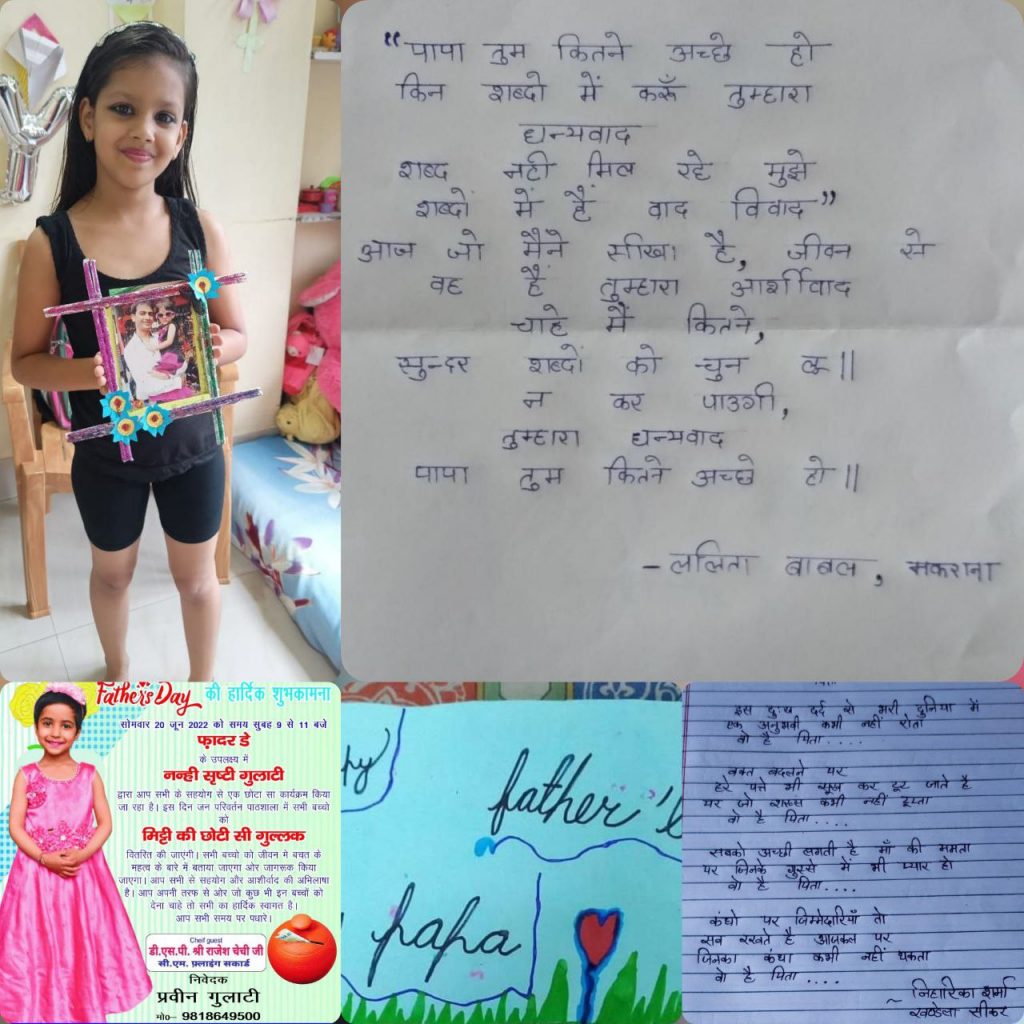 “पापा तुम कितने अच्छे हो
किन शब्दो में करूँ तुम्हारा
धन्यवाद
शब्द नही मिल रहे मुझे
शब्दों में हैं वाद विवाद”
आज जो मैने सीखा है, जीवन से
वह हैं तुम्हारा आर्शीवाद
चाहे मैं कितने,
सुन्दर शब्दों को चुन लू॥
न कर पाउगी,
तुम्हारा धन्यवाद
पापा तुम कितने अच्छे हो॥
- ललिता बाबल, मकराना
Father's Day की हार्दिक शुभकामना
सोमवार 20 जून 2022 को समय सुबह 9 से 11 बजे
फ़ादर डे
के उपलक्ष्य में
नन्ही सृष्टी गुलाटी
द्वारा आप सभी के सहयोग से एक छोटा सा कार्यक्रम किया
जा रहा है। इस दिन जन परिवर्तन पाठशाला में सभी बच्चो
को
मिट्टी की छोटी सी गुल्लक
वितरित की जाएंगी। सभी बच्चो को जीवन मे बचत के
महत्व के बारे में बताया जाएगा ओर जागरूक किया
जाएगा। आप सभी से सहयोग और आशीर्वाद की अभिलाषा
है। आप अपनी तरफ से ओर जो कुछ भी इन बच्चों को
देना चाहे तो सभी का हार्दिक स्वागत है।
आप सभी समय पर पधारे।
Cheif guest
डी.एस.पी. श्री राजेश चेची जी
सी.एम. फ़्लाइंग सकार्ड
निवेदक
प्रवीन गुलाटी
मो०- 9818649500
father's
papa
इस दुःख दर्द से भरी दुनिया में
एक अनुभवी कभी नहीं रोता
वो है पिता....
वक्त बदलने पर
हरे पत्ते भी सूख कर टूट जाते है
पर जो शख्स कभी नहीं टूटता
वो है पिता....
सबको अच्छी लगती है माँ की ममता
पर जिनके गुस्से में भी प्यार हो
वो है पिता....
कंधो पर जिम्मेदारियाँ तो
सब रखते है आजकल पर
जिनका कंधा कभी नहीं थकता
वो है पिता....
~ निहारिका शर्मा
खण्डेला सीकर